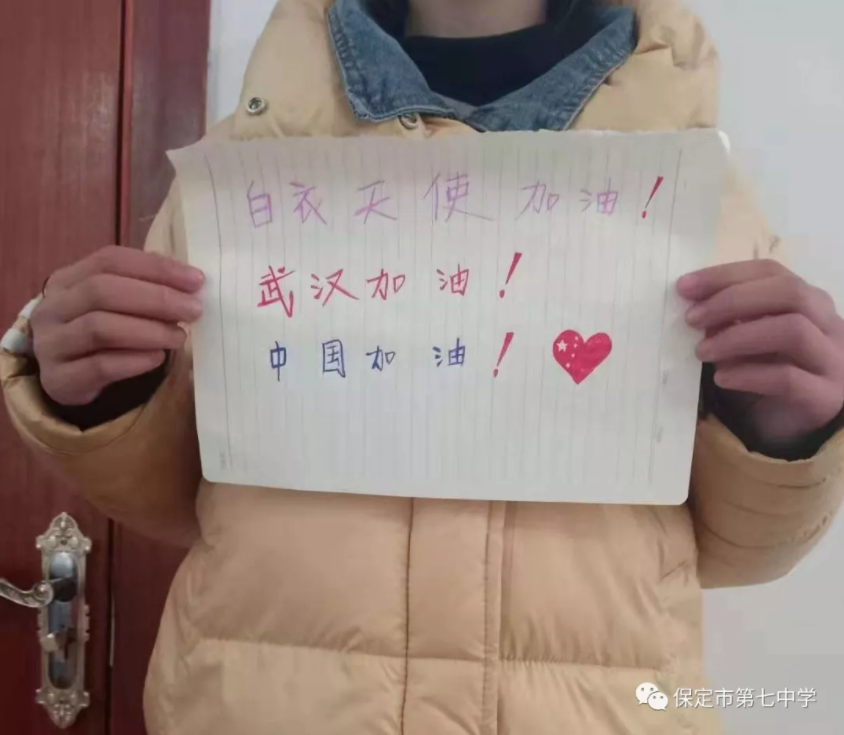 白衣天使加油！
武汉加油！
中国加油！
保定市第七中学